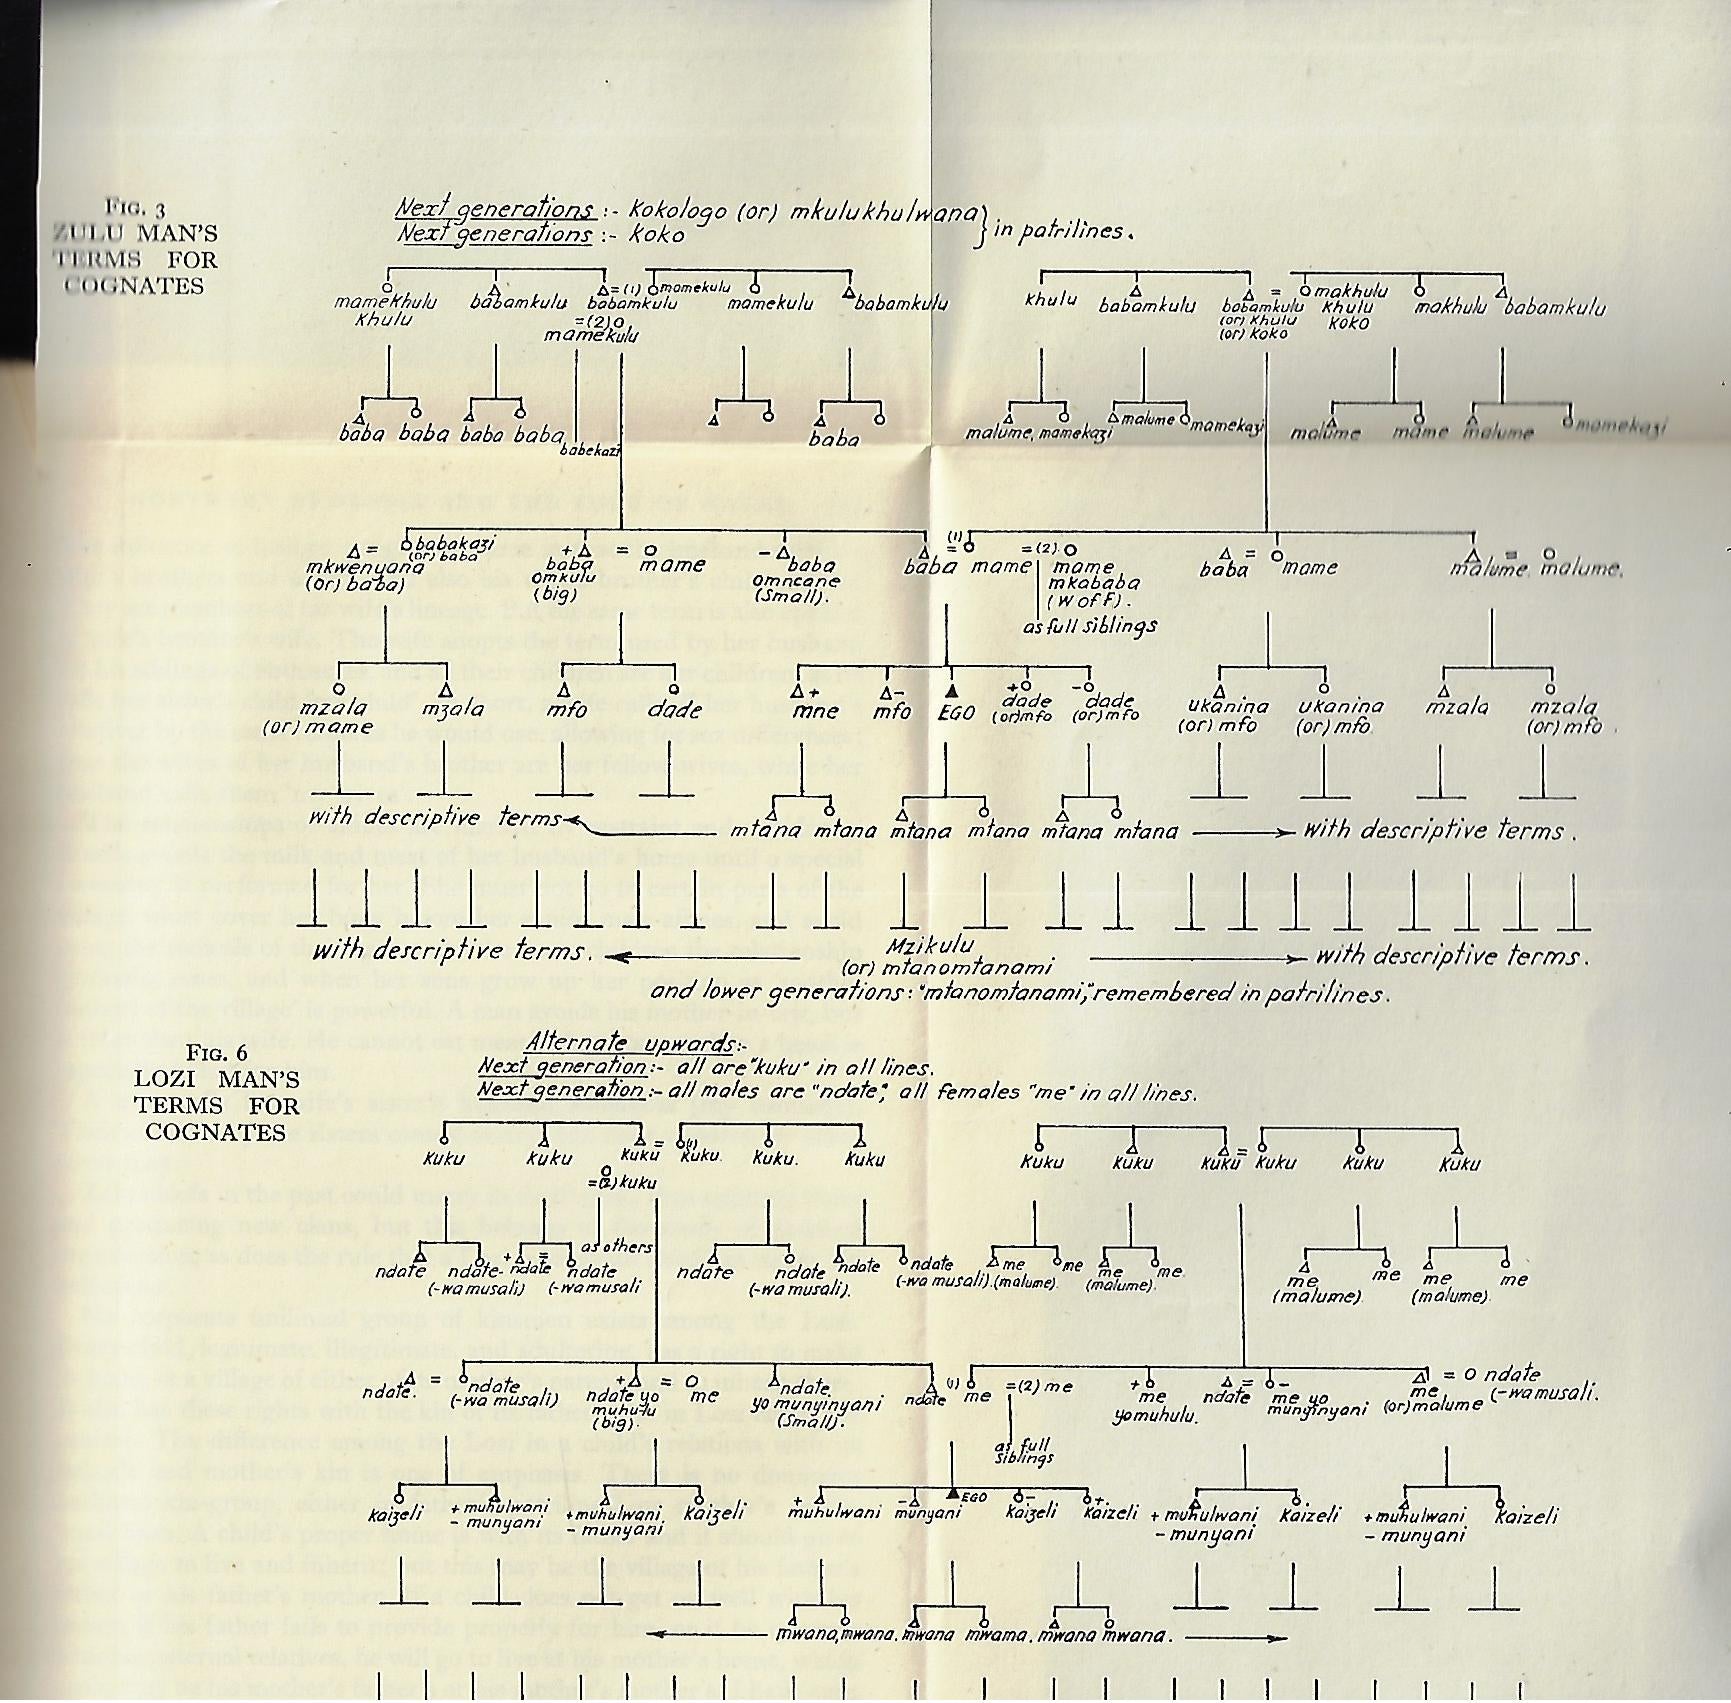 FIG. 3
ZULU MAN'S
TERMS FOR
COGNATES
Next generations :- Kokologo (or) mkulukhulwana } in patrilines.
Next generations :- Koko
mamekhulu babamkulu = (1) mamekulu mamekulu babamkulu khulu babamkulu = makhulu makhulu babamkulu
khulu babamkulu babamkulu khulu
= (2) (or) khulu koko
mamekulu (or) koko
baba baba baba baba babekazi baba malume, mamekazi malume mamekazi malume mame malume mamekazi
= babakazi + = - (1) = (2) = =
mkwenyana (or) baba baba mame baba baba mame mame baba mame malume malume.
(or) baba) omkulu omncane mkababa
(big) (small). (w of f).
as full siblings
mzala mzala mfo dade + mne - mfo EGO + dade - dade ukanina ukanina mzala mzala
(or) mame (or) mfo (or) mfo (or) mfo (or) mfo. (or) mfo.
with descriptive terms mtana mtana mtana mtana mtana mtana with descriptive terms.
with descriptive terms. Mzikulu with descriptive terms.
(or) mtanomtanami
and lower generations: "mtanomtanami," remembered in patrilines.
FIG. 6
LOZI MAN'S
TERMS FOR
COGNATES
Alternate upwards:-
Next generation:- all are "kuku" in all lines.
Next generation:- all males are "ndate," all females "me" in all lines.
kuku kuku kuku = (1) kuku. kuku. kuku kuku kuku kuku = kuku kuku kuku
= (2) kuku
ndate ndate- + ndate = ndate as others ndate ndate ndate ndate me me me me. me me me me
(-wa musali) (-wa musali (-wa musali). (-wa musali). (malume). (malume). (malume). (malume).
ndate. = ndate + ndate yo = me ndate ndate (1) me = (2) me + me ndate = - me yo me = ndate
(-wa musali) muhulu yo munyinyani yomuhulu. munyinyani (or) malume (-wa musali.
(big). (small).
as full
siblings
kaizeli + muhulwani + muhulwani kaizeli + muhulwani - munyani EGO - kaizeli + kaizeli + muhulwani kaizeli + muhulwani kaizeli
- munyani - munyani - munyani - munyani
mwana, mwana. mwana mwama. mwana mwana.